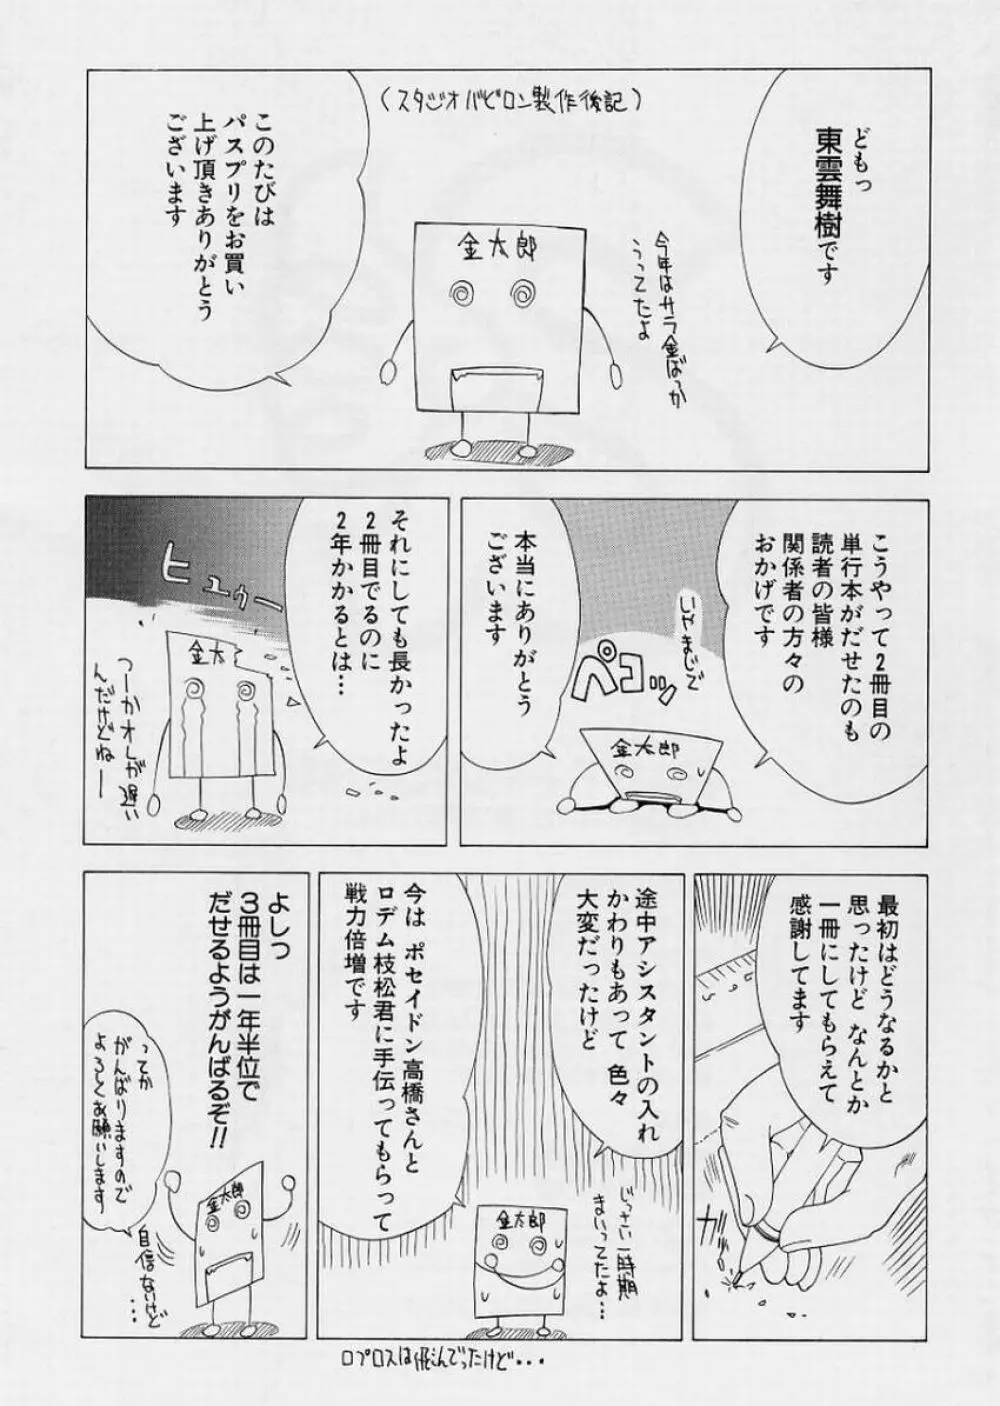 (スタジオバビロン製作後記)
どもっ
東雲舞樹です
今年はサラ金ばっか
うってたよ
金太郎
このたびは
パスプリをお買い
上げ頂きありがとう
ございます
こうやって2冊目の
単行本がだせたのも
読者の皆様
関係者の方々の
おかげです
いやまじで
ペコッ
金太郎
本当にありがとう
ございます
それにしても長かったよ
2冊目でるのに
2年かかるとは…
ヒュゥー
金太
つーかオレが遅い
んだけどねー
最初はどうなるかと
思ったけど なんとか
一冊にしてもらえて
感謝してます
ガ
途中アシスタントの入れ
かわりもあって 色々
大変だったけど
じっさい一時期
まいってたよ…
金太郎
今は ポセイドン高橋さんと
ロデム枝松君に手伝ってもらって
戦力倍増です
よしっ
3冊目は一年半位で
だせるようがんばるぞ!!
ってか
がんばりますので
よろしくお願いします
金太郎
自信ないけど
…
ロプロスは飛んでったけど…